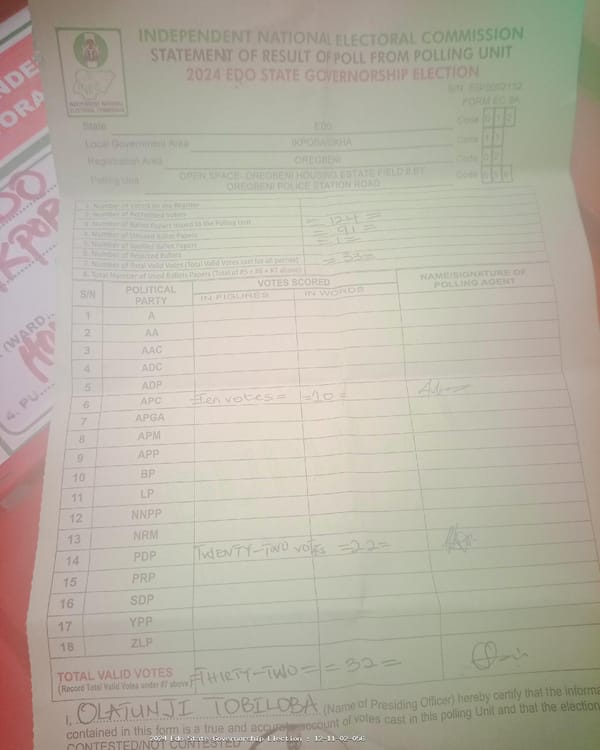 INDEPENDENT NATIONAL ELECTORAL COMMISSION
STATEMENT OF RESULT OF POLL FROM POLLING UNIT
2024 EDO STATE GOVERNORSHIP ELECTION
INDEPENDENT NATIONAL ELECTORAL COMMISSION
FORM EC 8A
State EDO Code
Local Government Area IKPOBA/OKHA Code
Registration Area OREGBENI Code
Polling Unit OPEN SPACE- OREGBENI HOUSING ESTATE FIELD II BY OREGBENI POLICE STATION ROAD Code
1. Number of Voters on the Register
2. Number of Accredited Voters
3. Number of Ballot Papers Issued to the Polling Unit = 124 =
4. Number of Unused Ballot Papers = 91 =
5. Number of Spoiled Ballot Papers = 1 =
6. Number of Rejected Ballots
7. Number of Total Valid Votes (Total Valid Votes cast for all parties) = 33 =
8. Total Number of Used Ballots Papers (Total of #5 + #6 + #7 above)
S/N POLITICAL PARTY VOTES SCORED NAME/SIGNATURE OF POLLING AGENT
IN FIGURES IN WORDS
1 A
2 AA
3 AAC
4 ADC
5 ADP
6 APC =Ten votes= =10=
7 APGA
8 APM
9 APP
10 BP
11 LP
12 NNPP
13 NRM
14 PDP TWENTY-TWO VOTES =22=
15 PRP
16 SDP
17 YPP
18 ZLP
TOTAL VALID VOTES =THIRTY-TWO= =32=
(Record Total Valid Votes under #7 above)
I, OLATUNJI TOBILOBA (Name of Presiding Officer) hereby certify that the informa
contained in this form is a true and accurate account of votes cast in this polling Unit and that the election
CONTESTED/NOT CONTESTED
2024 Edo State Governorship Election : 12-11-02-056
(WARD,
4. PU